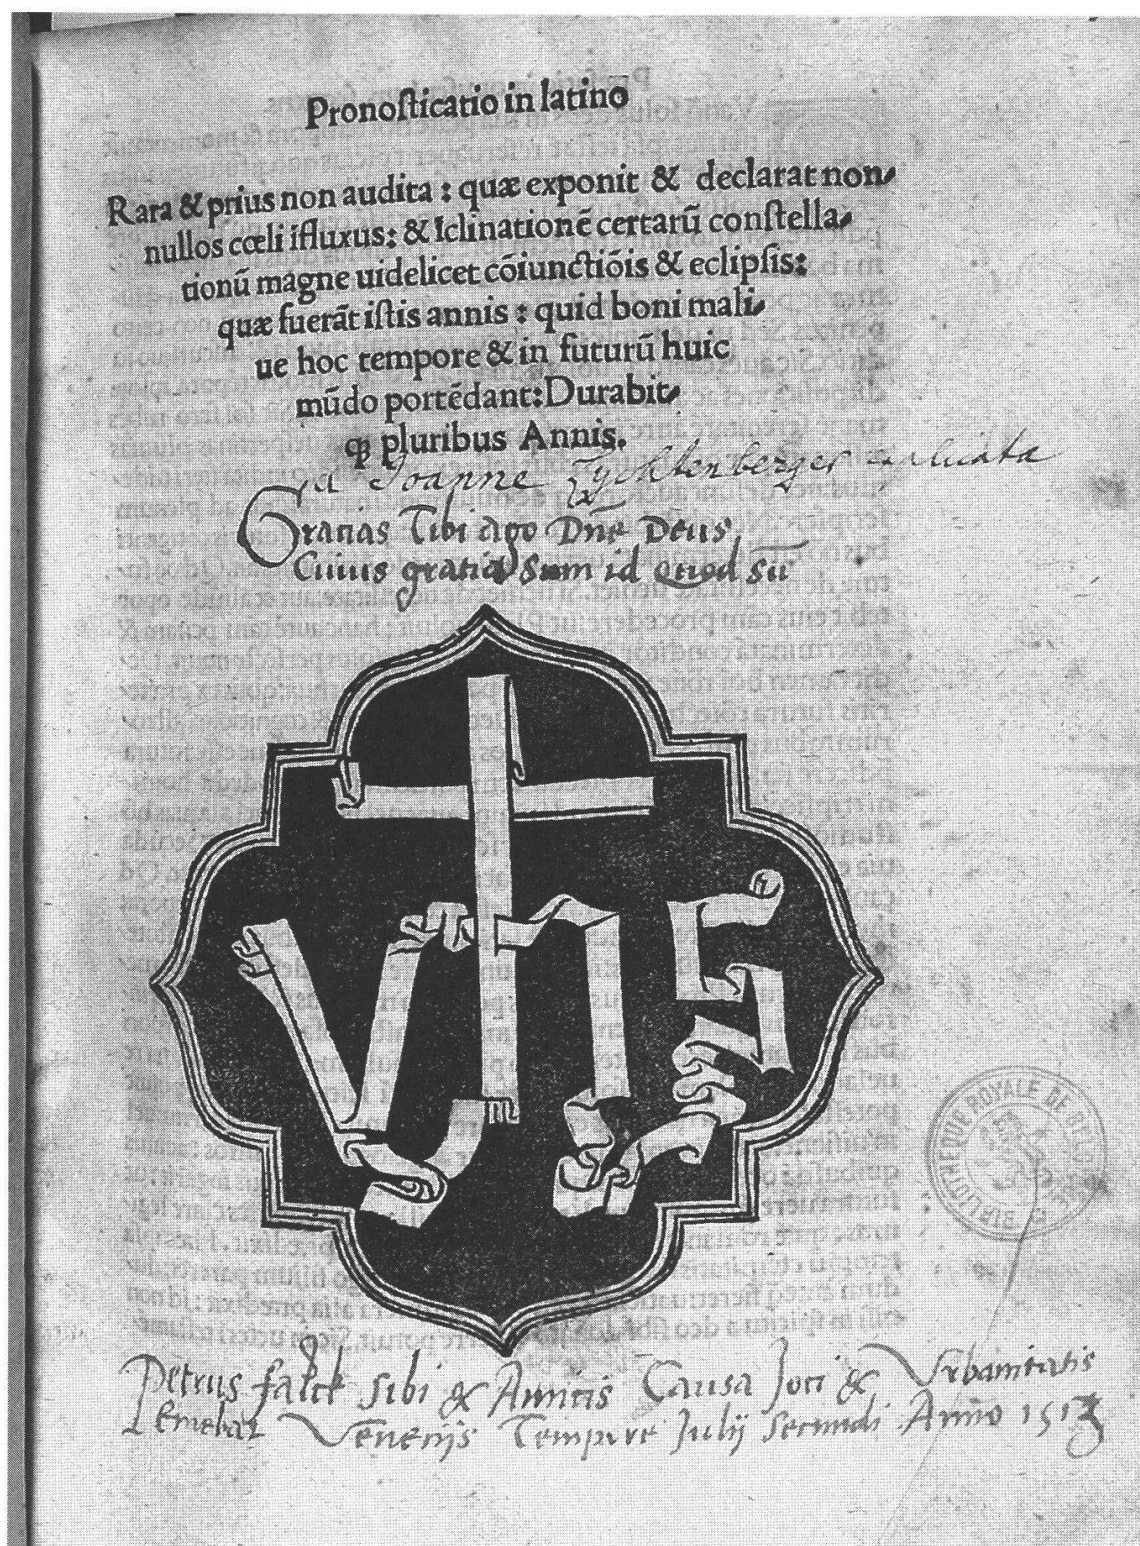 Pronosticatio in latino
Rara & prius non audita : quæ exponit & declarat non
nullos cœli īfluxus: & Iclinationē certarū constella
tionū magne uidelicet cōiunctiōis & eclipsis:
quæ fuerāt istis annis : quid boni mali
ue hoc tempore & in futurū huic
mūdo portēdant: Durabit
qȝ pluribus Annis.
a Joanne Lychtenberger explicata
Gratias Tibi ago Dn̄e Deus,
Cuius gratia Sum id quod sū
VTNE
BIBLIOTHEQUE ROYALE DE BELGIQUE
Petrus falck sibi & Amicis Causa Joci & Vrbanitatis
Emebat Venetijs Tempore Julij Secundi Anno 1513